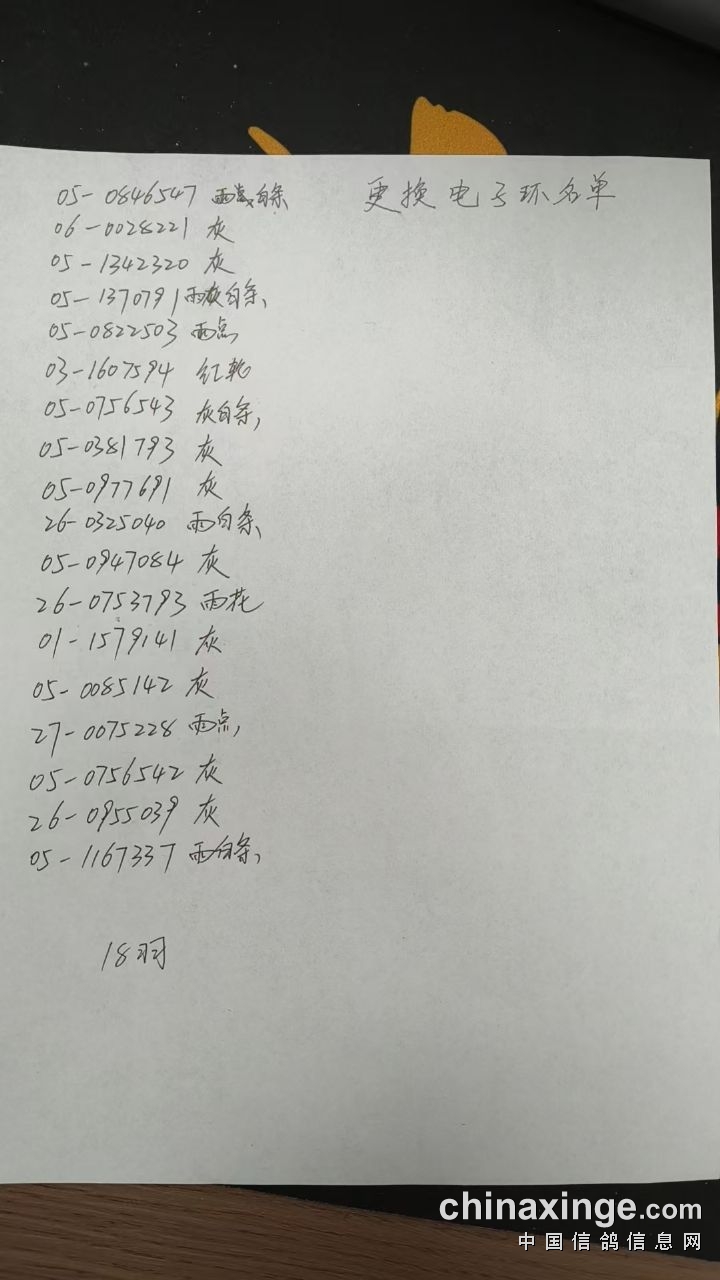 更换电子环名单
05-0846547 雨白条
06-0028221 灰
05-1342320 灰
05-1370791 雨白条、
05-0822503 雨点
03-1607594 红轮
05-0756543 灰白条,
05-0381793 灰
05-0977691 灰
26-0325040 雨白条、
05-0947084 灰
26-0753793 雨花
01-1579141 灰
05-0085142 灰
27-0075228 雨点,
05-0756542 灰
26-0955039 灰
05-1167337 雨白条、
18羽
chinaxinge.com
中国信鸽信息网